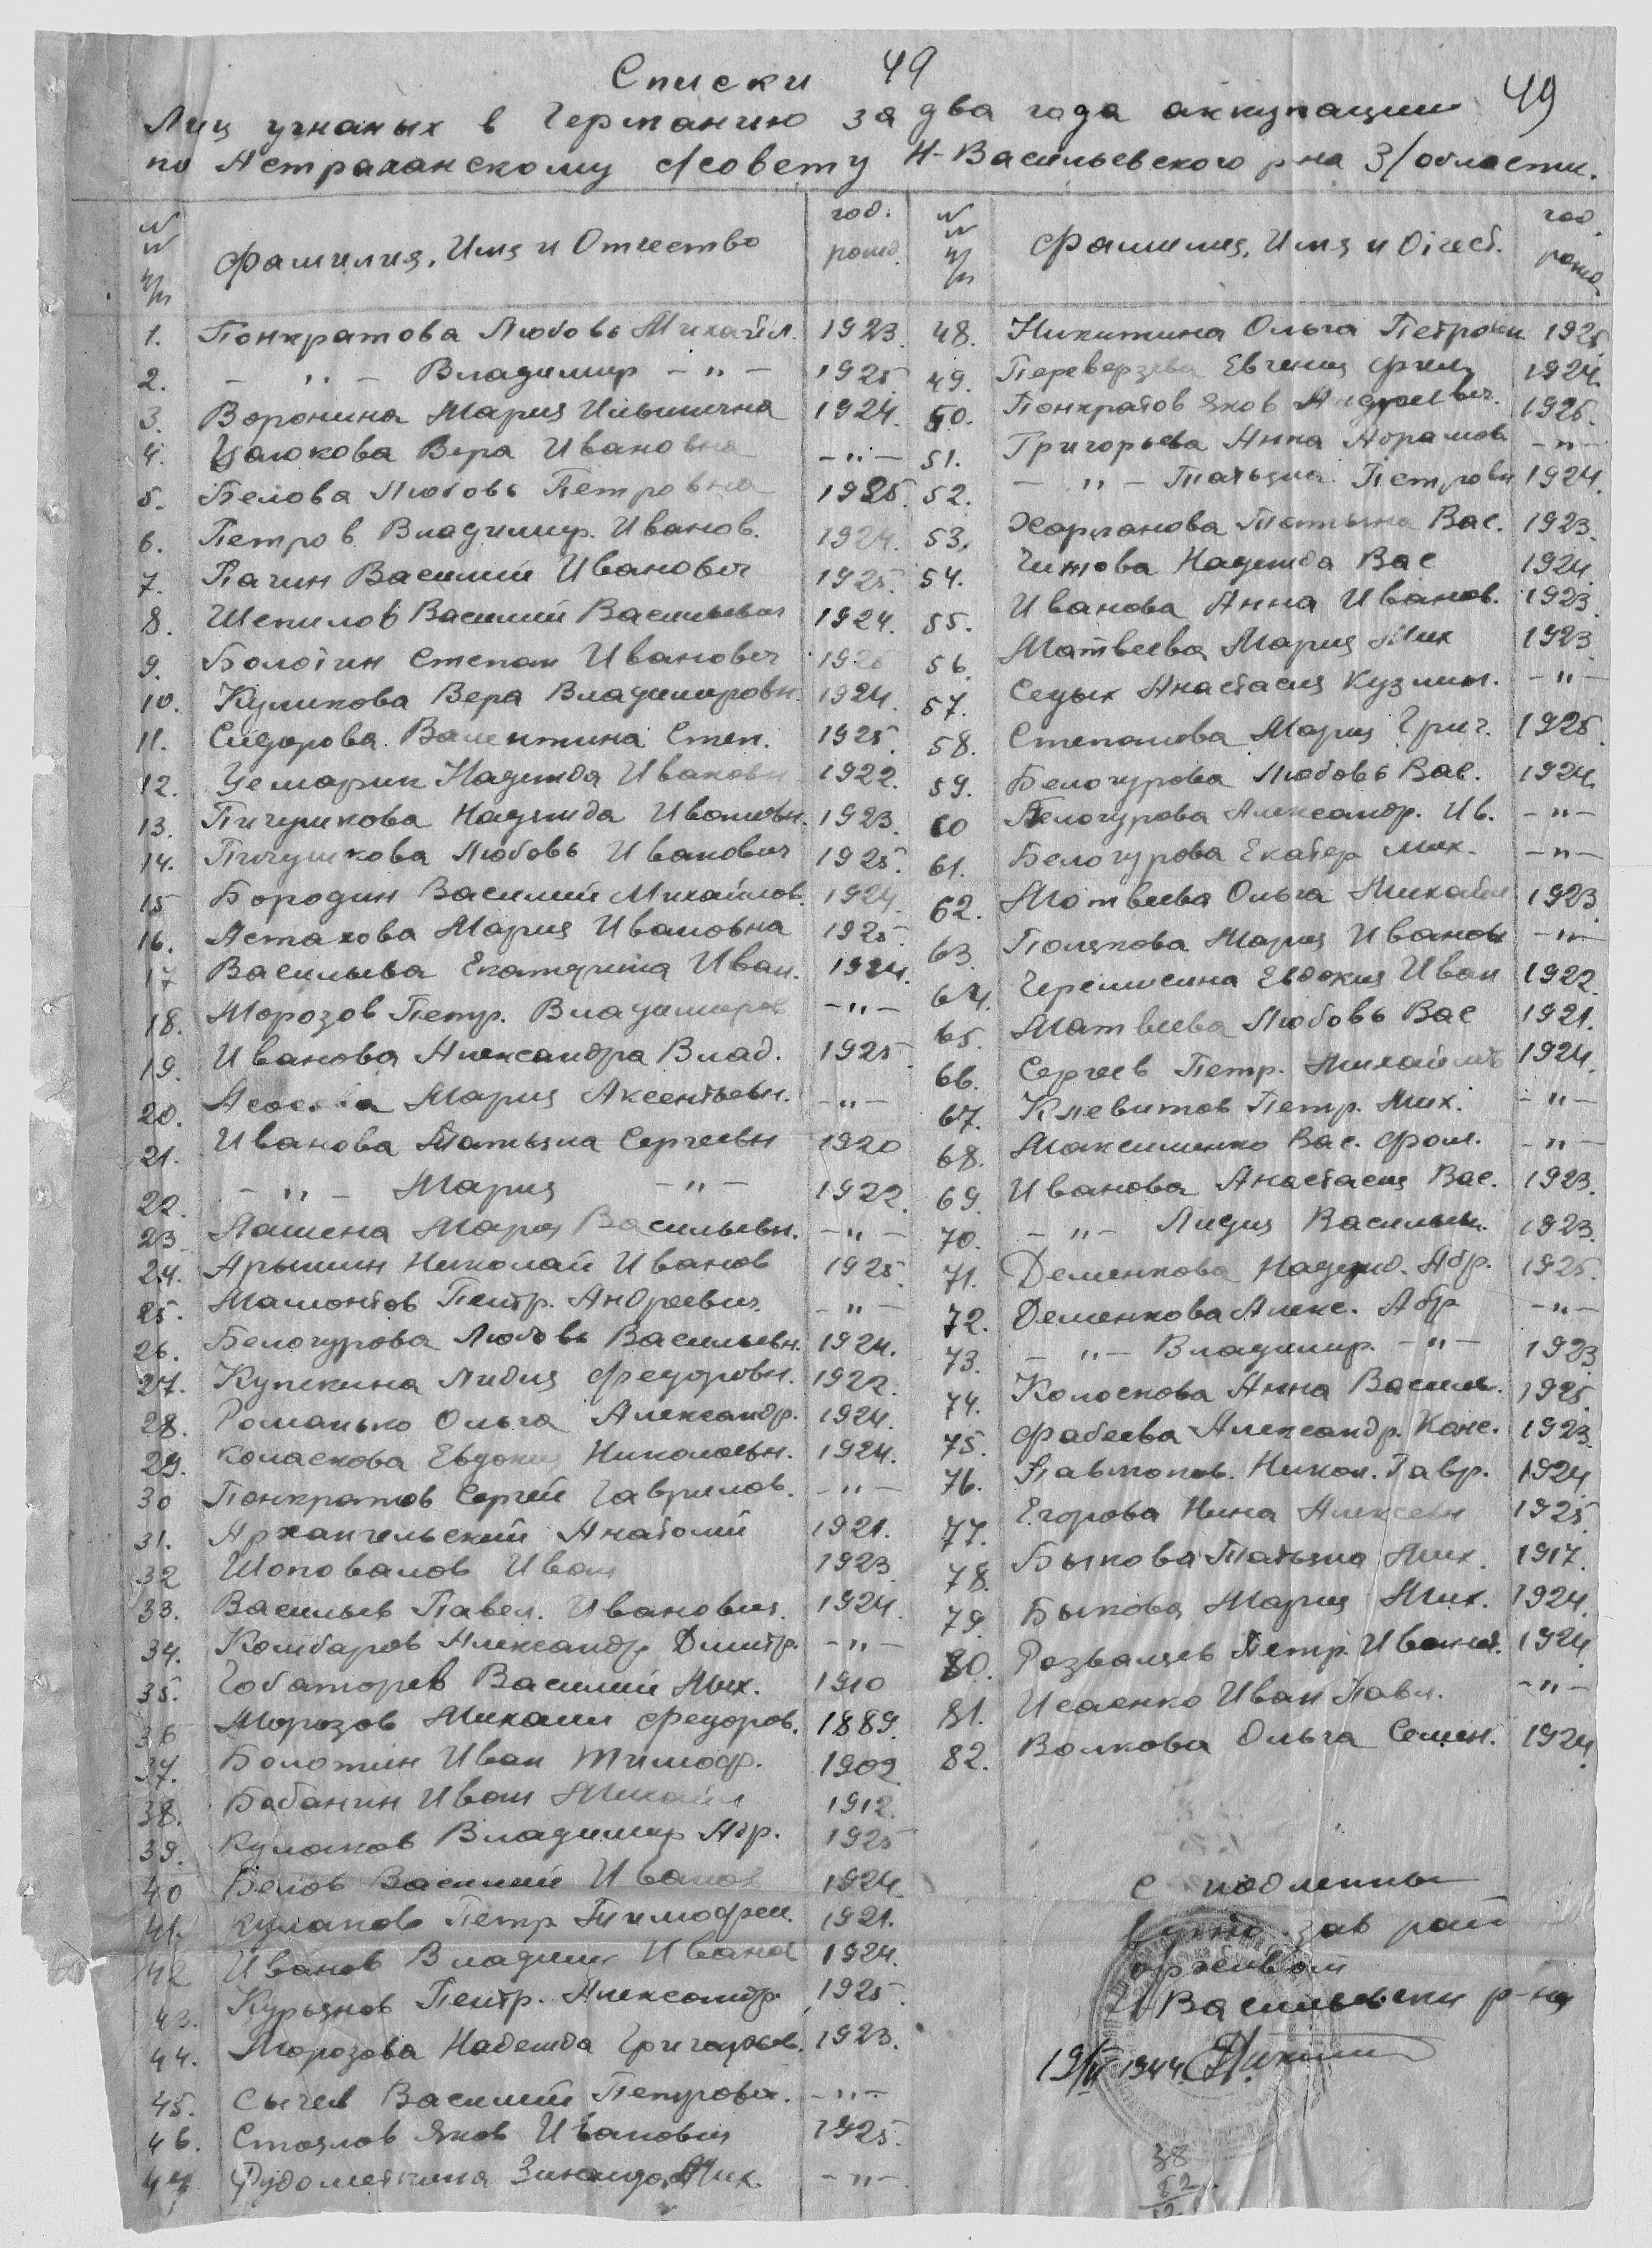 Списки 49
49
Лиц угнаных в Германию за два года аккупации
по Астраханскому с/совету Н-Васильевского р-на З/области.
№№ п/п Фамилия, Имя и Отчество год. рожд.
1. Понкратова Любовь Михайл. 1923.
2. - " - Владимир - " - 1925
3. Воронина Мария Ильинична 1924.
4. Цалюкова Вера Ивановна - " -
5. Белова Любовь Петровна 1925.
6. Петров Владимир. Иванов. 1924.
7. Пагин Василий Иванович 1925.
8. Шепилов Василий Васильевич 1924.
9. Болотин Степан Иванович 1925
10. Куликова Вера Владимировн. 1924.
11. Сидорова Валентина Степ. 1925.
12. Надежда Ивановн 1922.
13. Пичушкова Надежда Ивановн. 1923.
14. Пичушкова Любовь Иванович 1925.
15 Бородин Василий Михайлов. 1924.
16. Астахова Мария Ивановна 1925.
17 Васильева Екатерина Иван. 1924.
18. Морозов Петр. Владимиров - " -
19. Иванова Александра Влад. 1925
20. Мария Аксентьевн. - " -
21. Иванова Татьяна Сергеевн 1920
22. - " - Мария - " - 1922.
23 Лашена Мария Васильевн. - " -
24. Арышин Николай Иванов 1925.
25. Мамонтов Петр. Андреевич. - " -
26. Белогурова Любовь Васильевн. 1924.
27. Купекина Лидия Федоровн. 1922.
28. Романько Ольга Александр. 1924.
29. Коласкова Евдокия Николаевн. 1924.
30 Понкратов Сергей Гаврилов. - " -
31. Архангельский Анатолий 1921.
32 Шоповалов Иван 1923.
33. Васильев Павел. Иванович. 1924.
34. Комбаров Александр Дмитр. - " -
35. Василий Мих. 1910
36 Морозов Михаил Федоров. 1889.
37. Болотин Иван Тимоф. 1902
38. Бабанин Иван Михайл 1912.
39. Кулаков Владимир Агр. 1925
40 Белов Василий Иванов 1924.
41. Кулаков Петр Тимофеи. 1921.
42 Иванов Владимир Иванов 1924.
43. Курьянов Петр. Александр. 1925.
44. Морозова Надежда Григорьев. 1923.
45. Сычев Василий Петрович. - " -
46. Стоялов Яков Иванович 1925.
47 Рудометкина Зинаида Мих. - " -
№№ п/п Фамилия, Имя и Отчест. год. рожд.
48. Никитина Ольга Петровн 1925.
49. Переверзева Евгения Фил. 1924.
50. Понкратов Яков Андреевич. 1925.
51. Григорьева Анна Абрамов - " -
52. - " - Татьяна Петровн 1924.
53. Харланова Татьяна Вас. 1923.
54. Надежда Вас 1924.
55. Иванова Анна Иванов. 1923.
56. Матвеева Мария Мих 1923
57. Седых Анастасия Кузмин. - " -
58. Степанова Мария Григ. 1925.
59. Белогурова Любовь Вас. 1924.
60 Белогурова Александр. Ив. - " -
61. Белогурова Екатер Мих. - " -
62. Матвеева Ольга Михайл 1923.
63. Полякова Мария Иванов - " -
64. Черемисина Евдокия Иван 1922.
65. Матвеева Любовь Вас 1921.
66. Сергеев Петр. Михайлов 1924.
67. Клевитов Петр. Мих. - " -
68. Максименко Вас. Фом. - " -
69. Иванова Анастасия Вас. 1923.
70. - " - Лидия Васильев. 1923.
71. Деменкова Надежд. Абр. 1925.
72. Деменкова Алекс. Абр - " -
73. - " - Владимир. - " - 1923
74. Колоскова Анна Василь. 1925.
75. Фабеева Александр. Конс. 1923.
76. Никол. Гавр. 1924.
77. Егорова Нина Алексеевн 1925.
78. Быкова Татьяна Мих. 1917.
79. Быкова Мария Мих. 1924.
80. Петр. Иванов. 1924.
81. Исаенко Иван Павл. - " -
82. Волкова Ольга Семен. 1924.
с подлинны
верно зав рай
архивом
Н-Васильевски р-на
1944
38